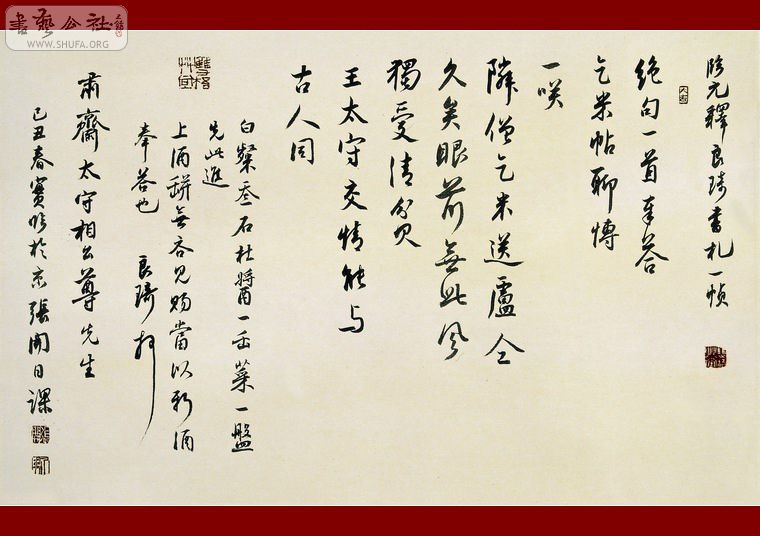 書藝公社
WWW.SHUFA.ORG
臨元釋良琦書札一幀
絶句一首奉荅
乞米帖聊博
一咲
隣僧乞米送盧仝
久矣眼前無此風
獨受清分
王太守交情能与
古人同
白粲叁石杜醬一缶菜一盤
先此進
上酒缾無吝見賜當以新酒
奉荅也 良琦拜
肅齋太守相公尊先生
己丑春賓臨於京張開日課